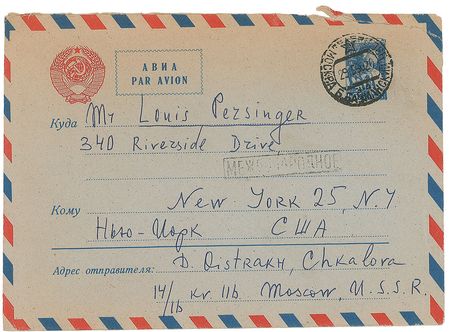 АВИА
PAR AVION
Куда
Mr Louis Persinger
340 Riverside Drive
МЕЖДУНАРОДНОЕ
New York 25, N.Y.
Кому
Нью-Йорк США
Адрес отправителя:
D. Oistrakh, Chkalova
14/16 кв. 116 Moscow, U.S.S.R.